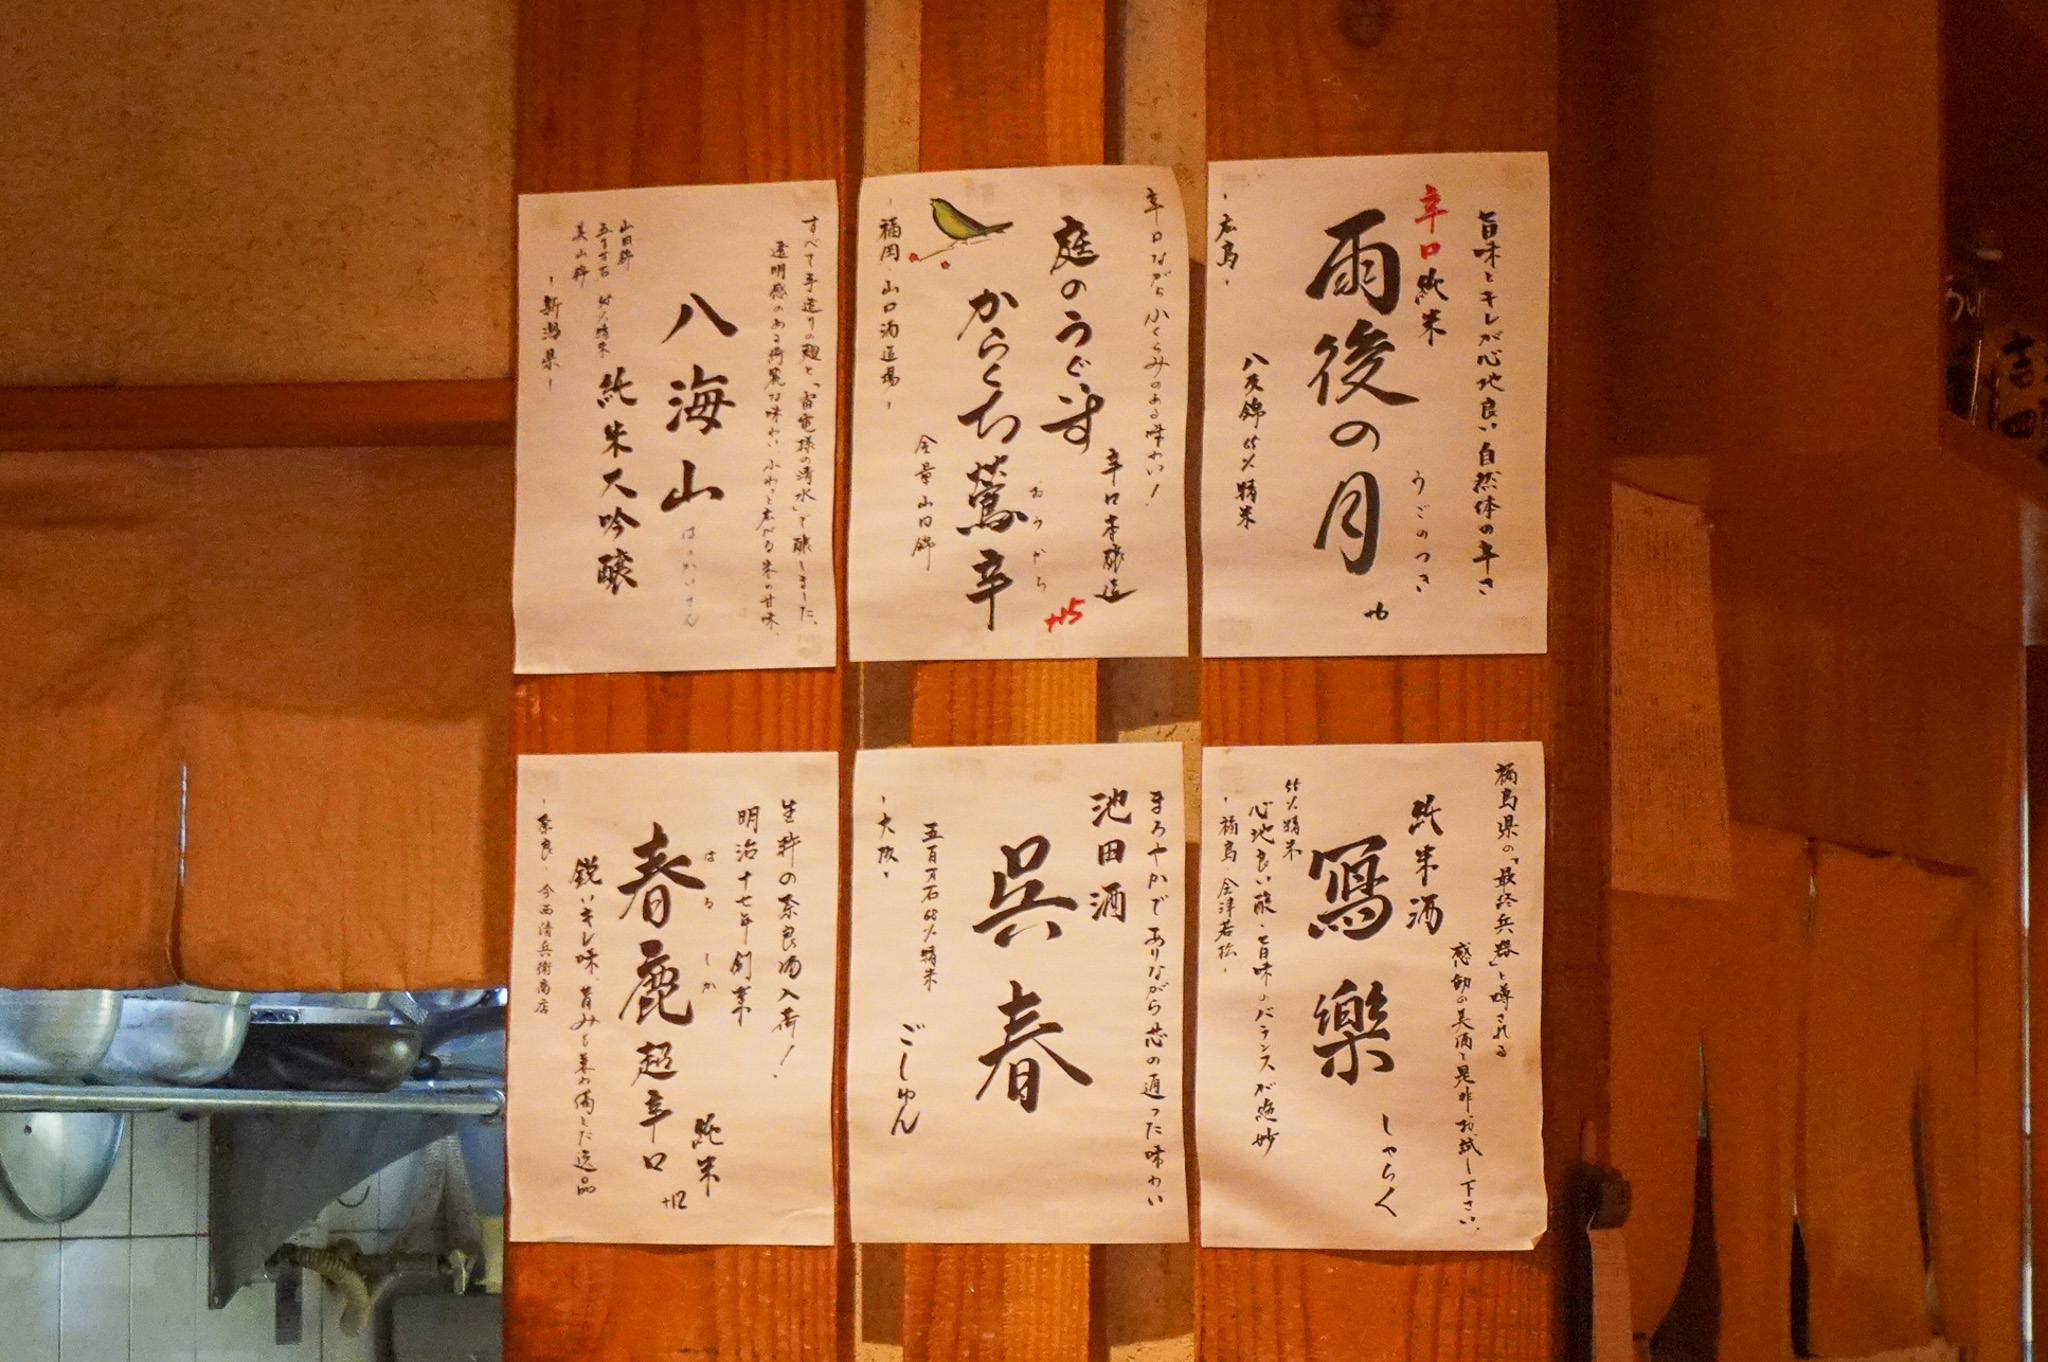 旨味とキレが心地良い自然体の辛さ
辛口純米
雨後の月
うごのつき
+6
八反錦65%精米
-広島-
辛口ながらふくらみのある味わい!
辛口本醸造
+15
庭のうぐいす
からくち鶯辛
おうから
全量山田錦
-福岡・山口酒造場-
すべて手造りの麹と「雷電様の清水」で醸しました。
透明感のある綺麗な味わい ふわっと広がる米の甘味。
八海山
はっかいさん
純米大吟醸
山田錦
五百万石
美山錦
精米
-新潟県-
福島県の「最終兵器」と噂される
感動の美酒を是非お試し下さい。
純米酒
寫樂
しゃらく
心地良い酸・旨味のバランスが絶妙
55%精米
-福島 会津若松-
まろやかでありながら芯の通った味わい
池田酒
呉春
ごしゅん
五百万石65%精米
-大阪-
生粋の奈良酒入荷!
明治十七年創業
純米
春鹿 超辛口
はるしか
+12
鋭いキレ味、旨みを兼ね備えた逸品
-奈良・今西清兵衛商店